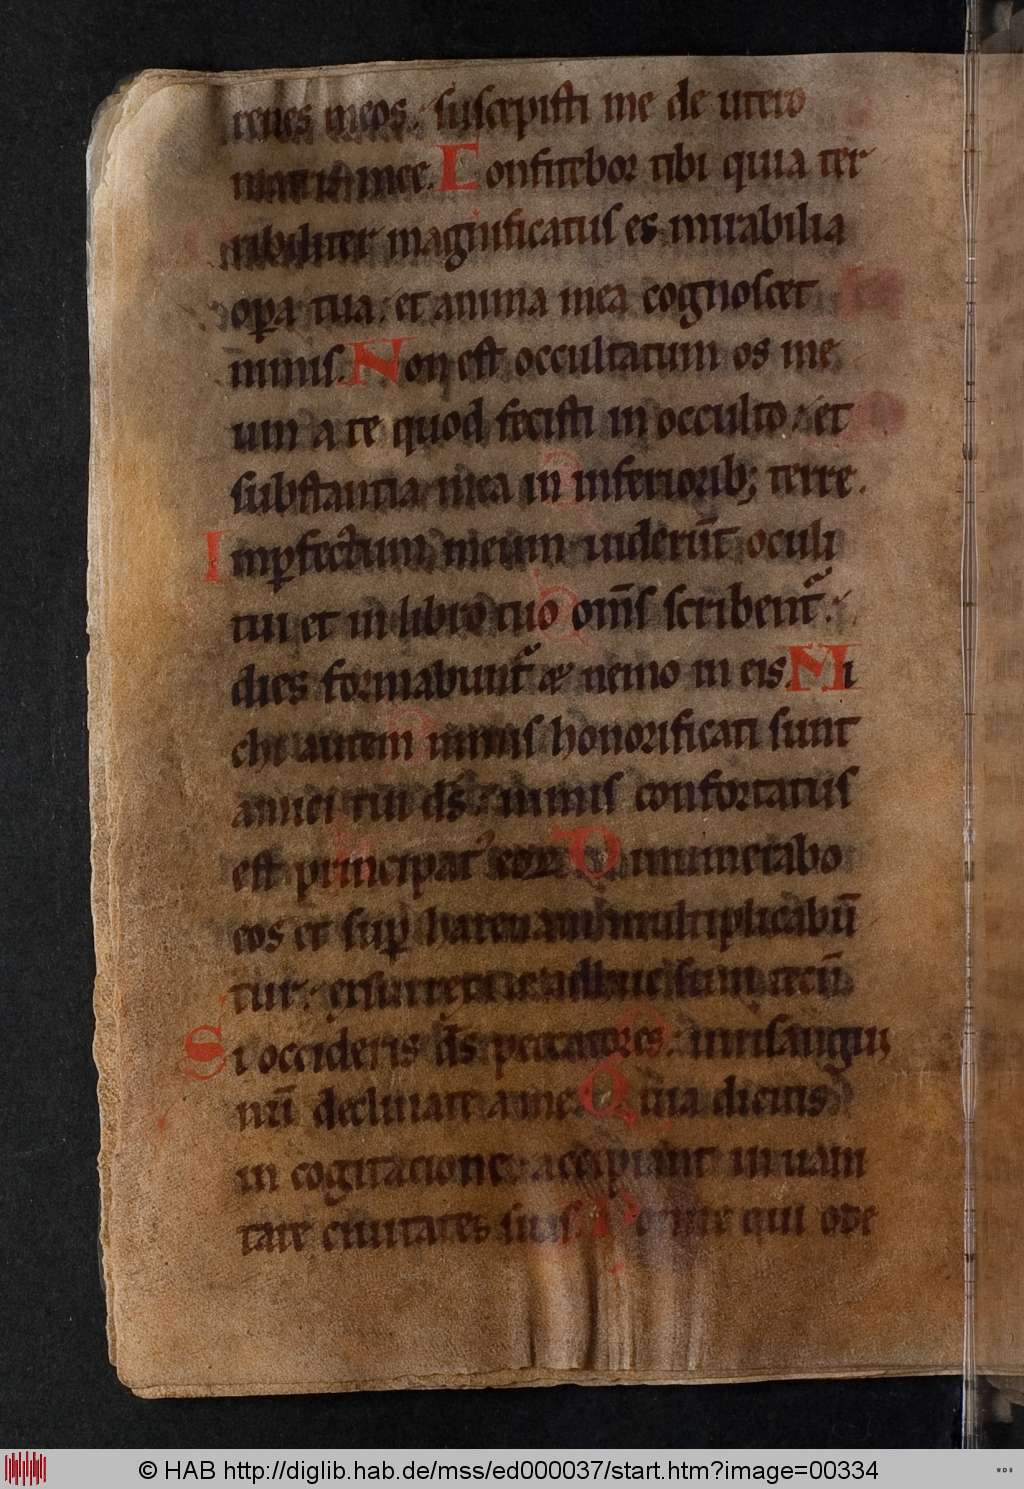 renes meos. suscepisti me de utero
matris mee. Confitebor tibi quia ter
ribiliter magnificatus es mirabilia
oꝑa tua. et anima mea cognoscet
nimis. Non est occultatum os me
um a te quod fecisti in occulto. et
substantia mea in inferiorib; terre.
Imꝑfectum meum uiderūt oculi
tui et in libro tuo om̄s scribent᷑.
dies formabunt᷑ & nemo in eis. Mi
chi autem nimis honorificati sunt
amici tui ds̄. nimis confortatus
est principat᷒ eoꝝ Dinumerabo
eos et suꝑ harenam multiplicabū
tur. exsurrexi et adhuc sum tecū
Si occideris ds̄ peccatores. uiri sangui
nū declinate a me. Quia dicitis
in cogitacione. accipiant in uani
tate ciuitates suas. Nonne qui ode
© HAB http://diglib.hab.de/mss/ed000037/start.htm?image=00334